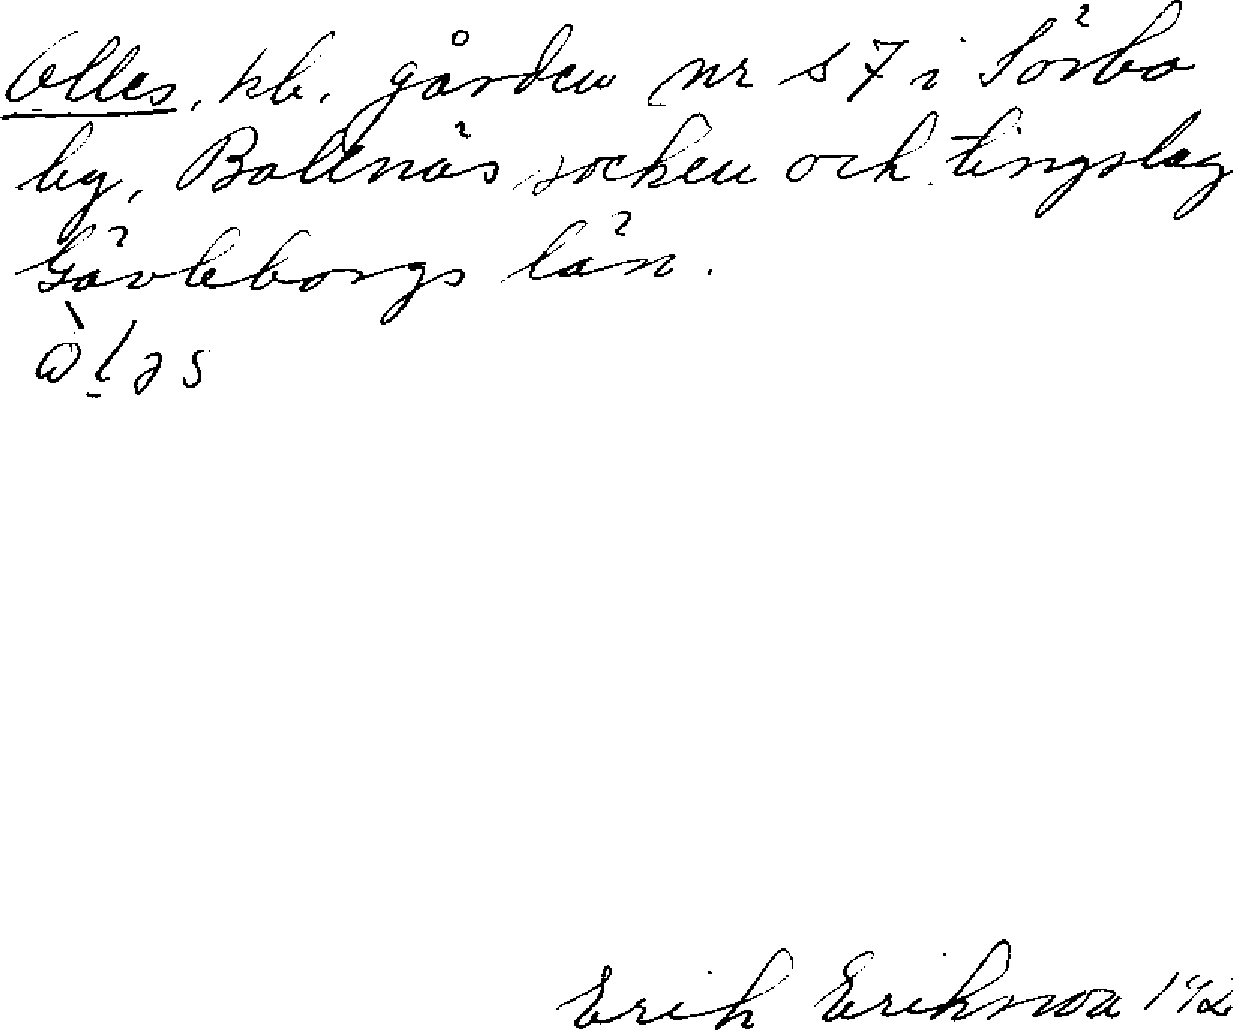 Olles, kb. gården nr 87 i Sörbo
by, Bollnäs socken och tingslag
Gävleborgs län.
Erik Erikson 192